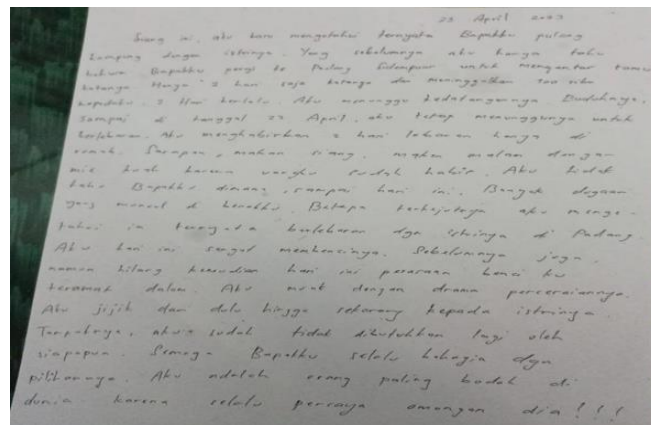 23 April 2023
Siang ini, aku baru mengetahui ternyata Bapakku pulang
kampung dengan istrinya. Yang sebelumnya aku hanya tahu
bahwa Bapakku pergi ke Padang Sidempuan untuk mengantar tamu
katanya. Hanya 2 hari saja katanya dan meninggalkan 200 ribu
kepadaku. 2 Hari berlalu. Aku menunggu kedatangannya. Bodohnya,
sampai di tanggal 22 April, aku tetap menunggunya untuk
berlebaran. Aku menghabiskan 2 hari lebaran hanya di
rumah. Sarapan, makan siang, makan malam dengan
mie kuah karena uangku sudah habis. Aku tidak
tahu Bapakku dimana, sampai hari ini. Banyak dugaan
yang muncul di benakku. Betapa terkejutnya aku menge-
tahui ia ternyata berlebaran dgn istrinya di Padang.
Aku hari ini sangat membencinya. Sebelumnya juga,
namun hilang kemudian hari ini perasaan benci ku
teramat dalam. Aku muak dengan drama perceraiannya.
Aku jijik dari dulu hingga sekarang kepada istrinya.
Tampaknya, aku sudah tidak dibutuhkan lagi oleh
siapapun. Semoga Bapakku selalu bahagia dgn
pilihannya. Aku adalah orang paling bodoh di
dunia karena selalu percaya omongan dia!!!